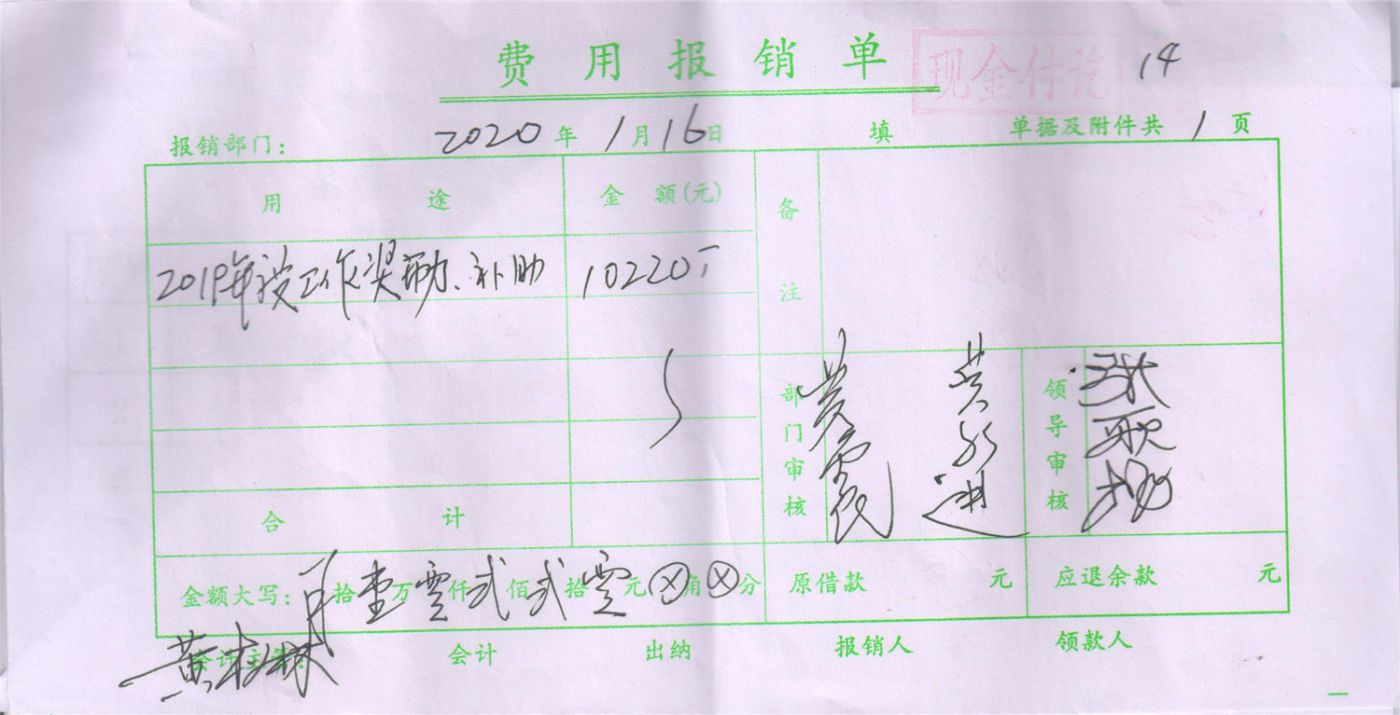 费用报销单 现金付讫 14
报销部门： 2020年1月16日 填 单据及附件共1页
用途 金额(元) 备注
2019年 工作奖励、补助 10220
部门审核 领导审核
合计
金额大写： 拾壹万零仟弍佰弍拾零元⊗角⊗分 原借款 元 应退余款 元
黄 林
会计 出纳 报销人 领款人